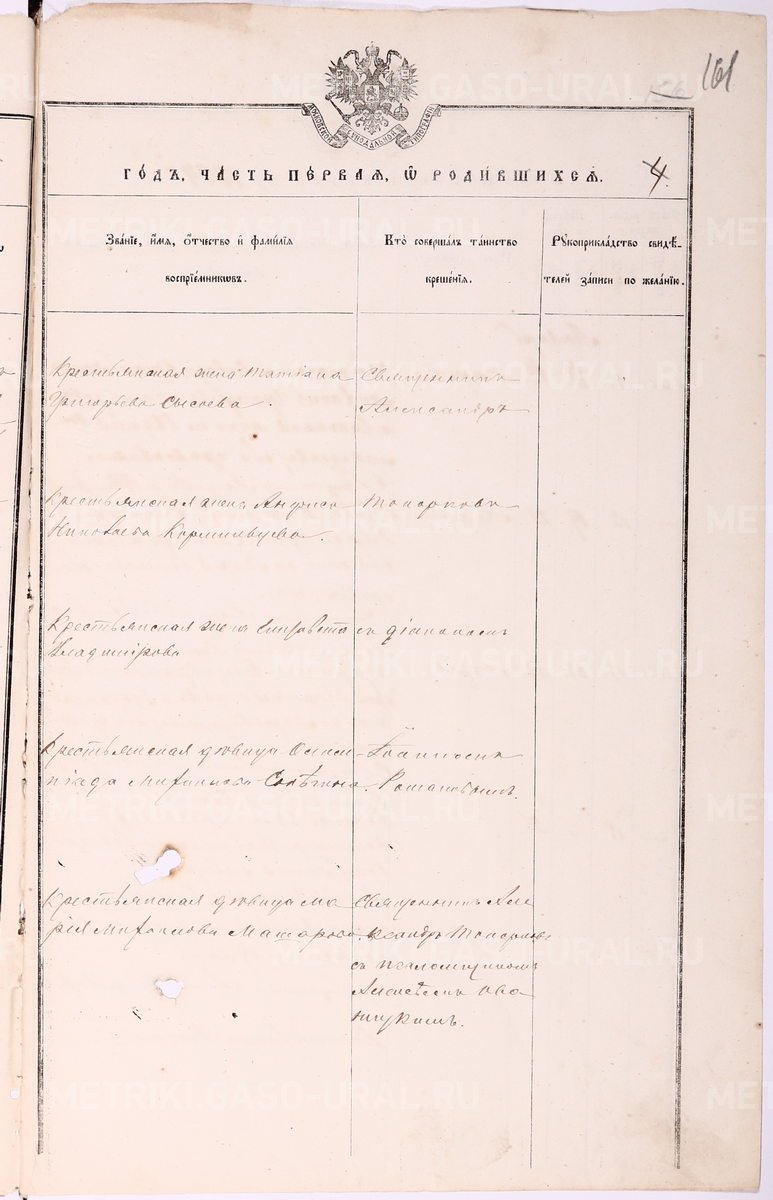 161
МОСКОВСКОЙ СѴНОДАЛЬНОЙ ТИПОГРАФІИ
ГО́ДЪ, ЧА́СТЬ ПЕ́РВАѦ, Ѡ҆ РОДИ́ВШИХСѦ.
4
Зва́нїе, и҆́мѧ, ѻ҆́тчество и҆ фами́лїѧ
воспрїе́мникѡвъ.
Кто̀ соверша́лъ та́инство
креще́нїѧ.
Рꙋкоприкла́дство свидѣ́-
телей за́писи по жела́нїю.
Крестьянская жена Татіана
Григорьева Сысоева.
Священникъ
Александръ
Крестьянская жена Анфиса
Николаева Кормильцева.
Топорковъ
Крестьянская жена Елизавета
Владимірова
съ діакономъ
Крестьянская дѣвица Олим-
піада Михаилова
Іоанномъ
Романовымъ.
Крестьянская дѣвица Ма
рія Михаилова Машарова.
Священникъ Але
ксандръ Топорковъ
съ псаломщикомъ
Алексѣемъ
METRIKI.GASO-URAL.RU